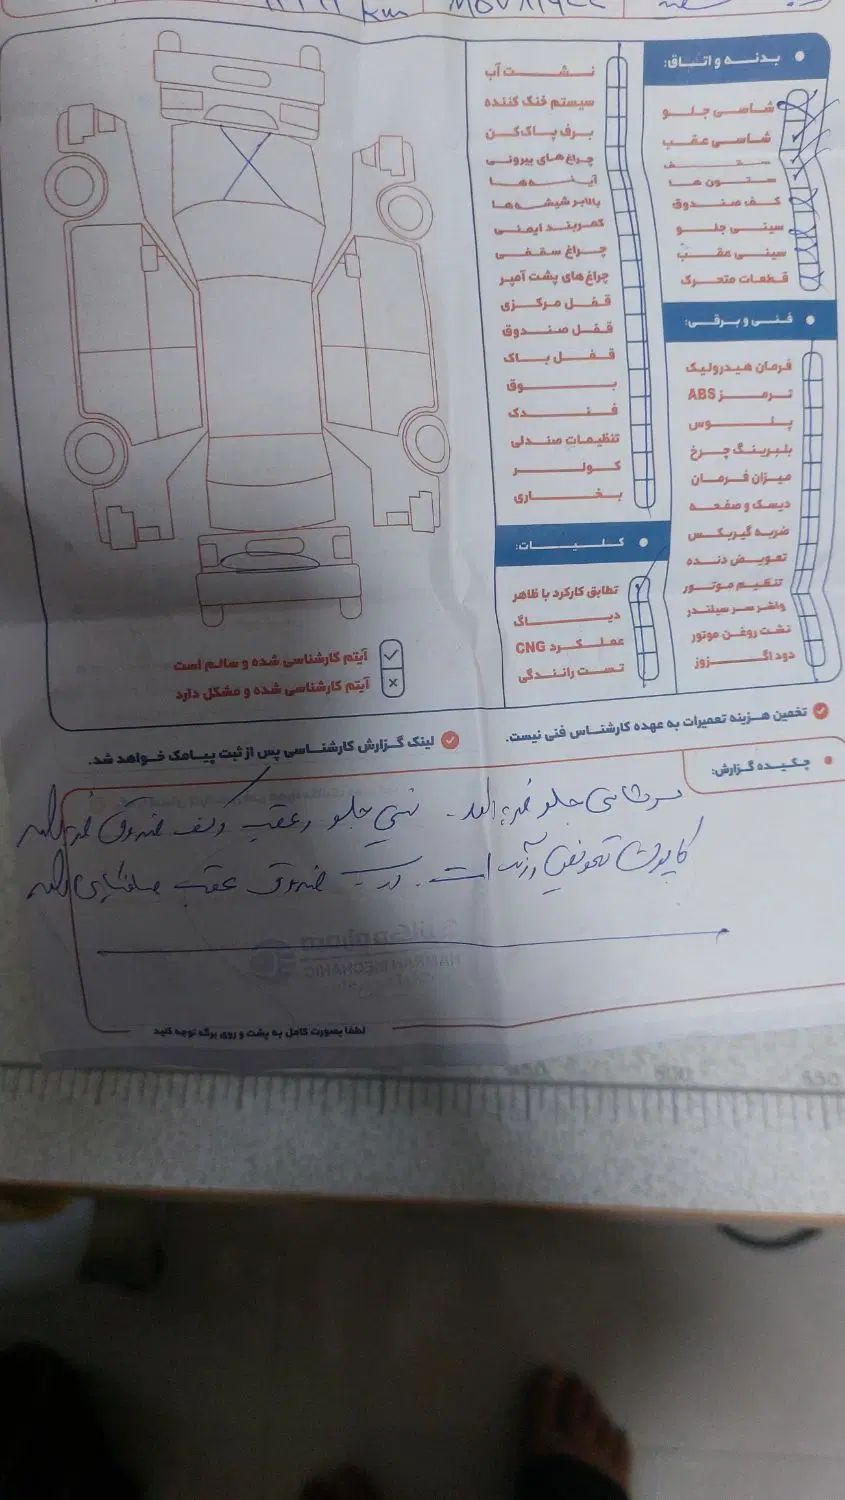 km
بدنه و اتاق:
شاسی جلو
شاسی عقب
سقف
ستون ها
کف صندوق
سینی جلو
سینی عقب
قطعات متحرک
فنی و برقی:
فرمان هیدرولیک
ترمز ABS
پلوس
بلبرینگ چرخ
میزان فرمان
دیسک و صفحه
ضربه گیربکس
تعویض دنده
تنظیم موتور
واشر سر سیلندر
نشت روغن موتور
دود اگزوز
نشت آب
سیستم خنک کننده
برف پاک کن
چراغ های بیرونی
آینه ها
بالابر شیشه ها
کمربند ایمنی
چراغ سقفی
چراغ های پشت آمپر
قفل مرکزی
قفل صندوق
قفل باک
بوق
فندک
تنظیمات صندلی
کولر
بخاری
کلیات:
تطابق کارکرد با ظاهر
دیاگ
عملکرد CNG
تست رانندگی
آیتم کارشناسی شده و سالم است
آیتم کارشناسی شده و مشکل دارد
تخمین هزینه تعمیرات به عهده کارشناس فنی نیست.
لینک گزارش کارشناسی پس از ثبت پیامک خواهد شد.
چکیده گزارش:
سرشاسی جلو ضربه سینی جلو و عقب و کف صندوق ضربه
کاپوت تعویض و رنگ است. درب صندوق عقب صافکاری
HAMRAH MECHANIC
لطفا بصورت کامل به پشت و روی برگه توجه کنید